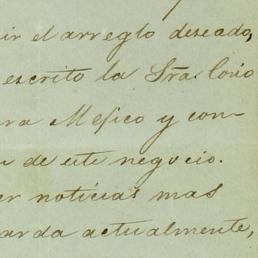 ir el arreglo deseado,
escrito la Sra. Covo
ra Mejico y con-
de este negocio.
er noticias mas
arda actualmente,